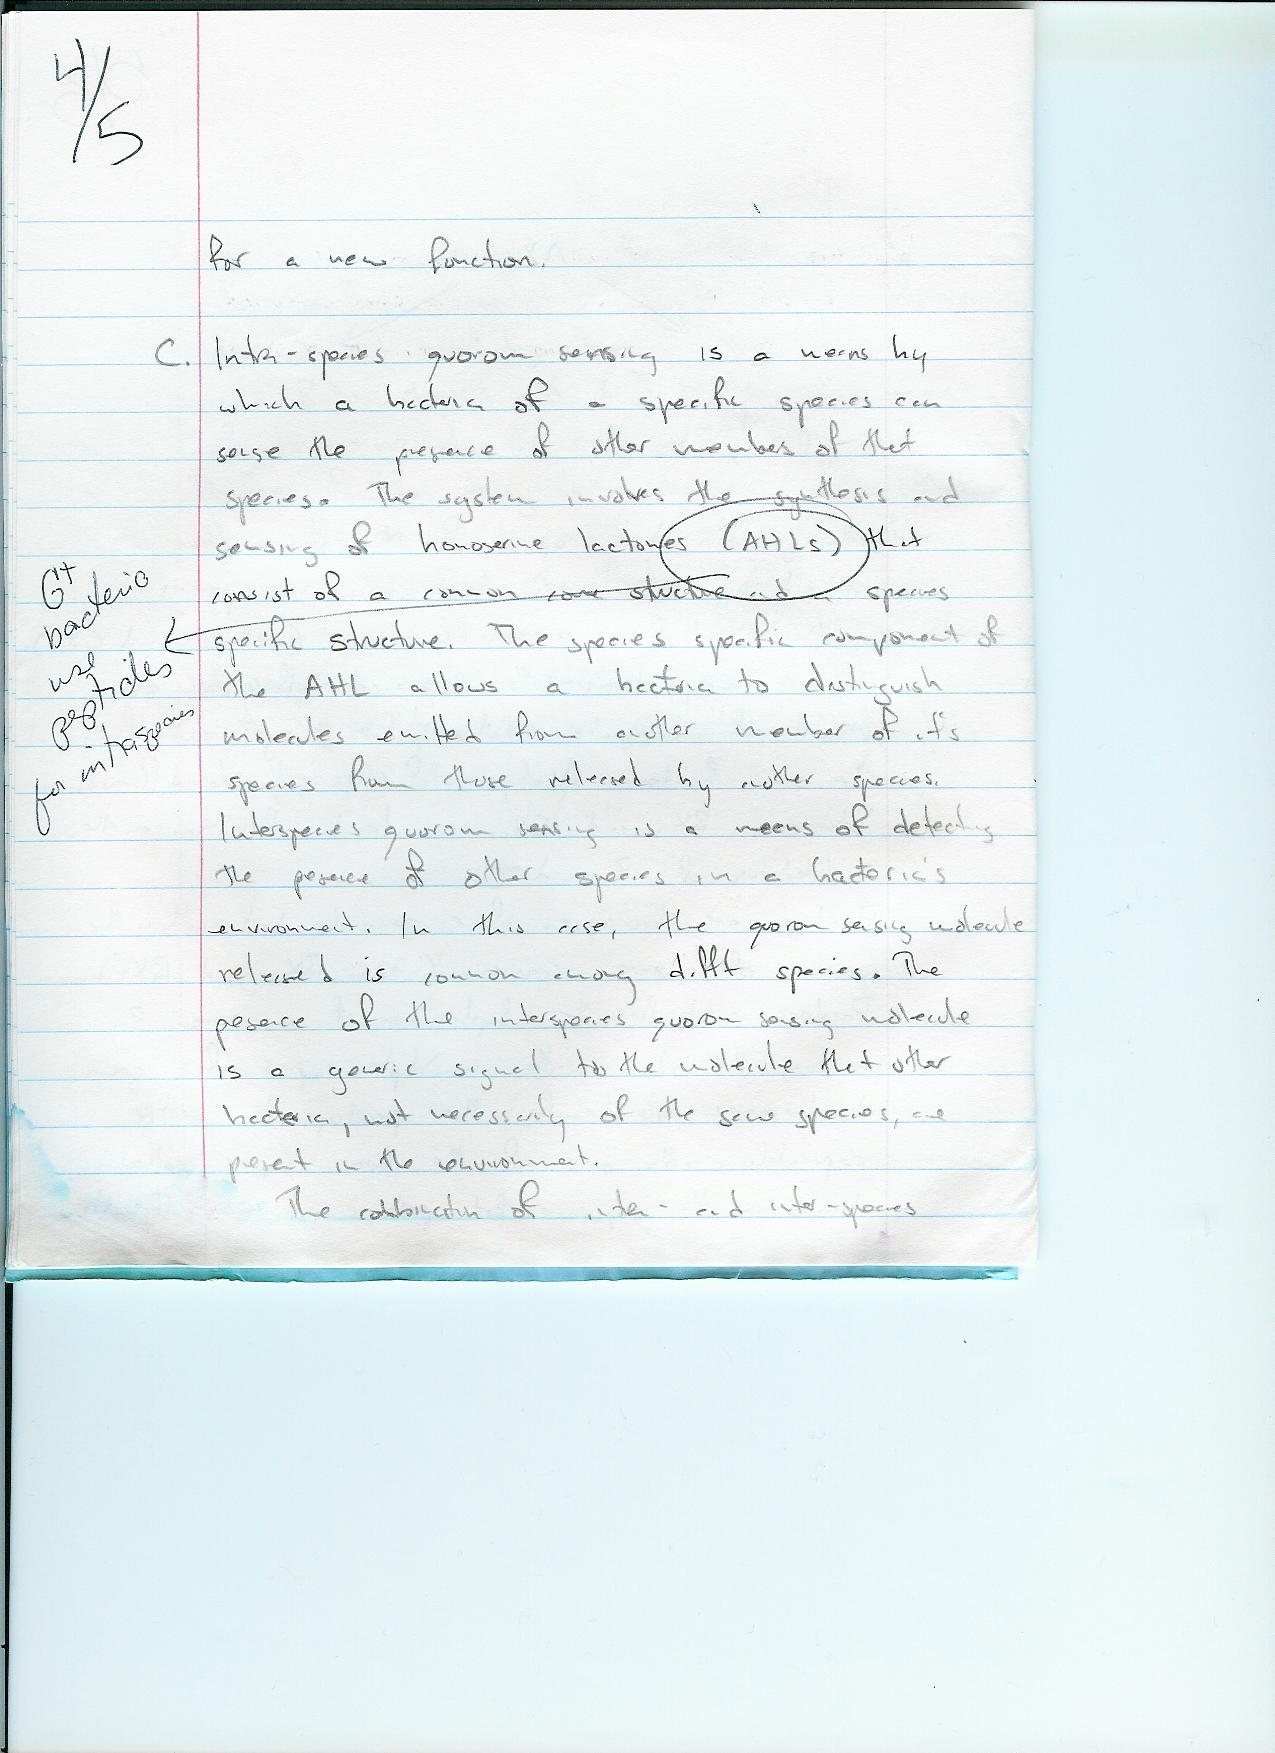 4/5
for a new function.
C. Intra-species quorom sensing is a means by
which a bacteria of a specific species can
sense the presence of other members of that
species. The system involves the synthesis and
sensing of homoserine lactones (AHLs) that
consist of a common core structure and a species
specific structure. The species specific component of
the AHL allows a bacteria to distinguish
molecules emitted from another member of it's
species from those released by another species.
Interspecies quorom sensing is a means of detecting
the presence of other species in a bacteria's
environment. In this case, the quorom sensing molecule
released is common among diff't species. The
presence of the interspecies quorom sensing molecule
is a generic signal to the molecule that other
bacteria, not necessarily of the same species, are
present in the environment.
The combination of intra- and inter-species
G+
bacteria
use
peptides
for intraspecies